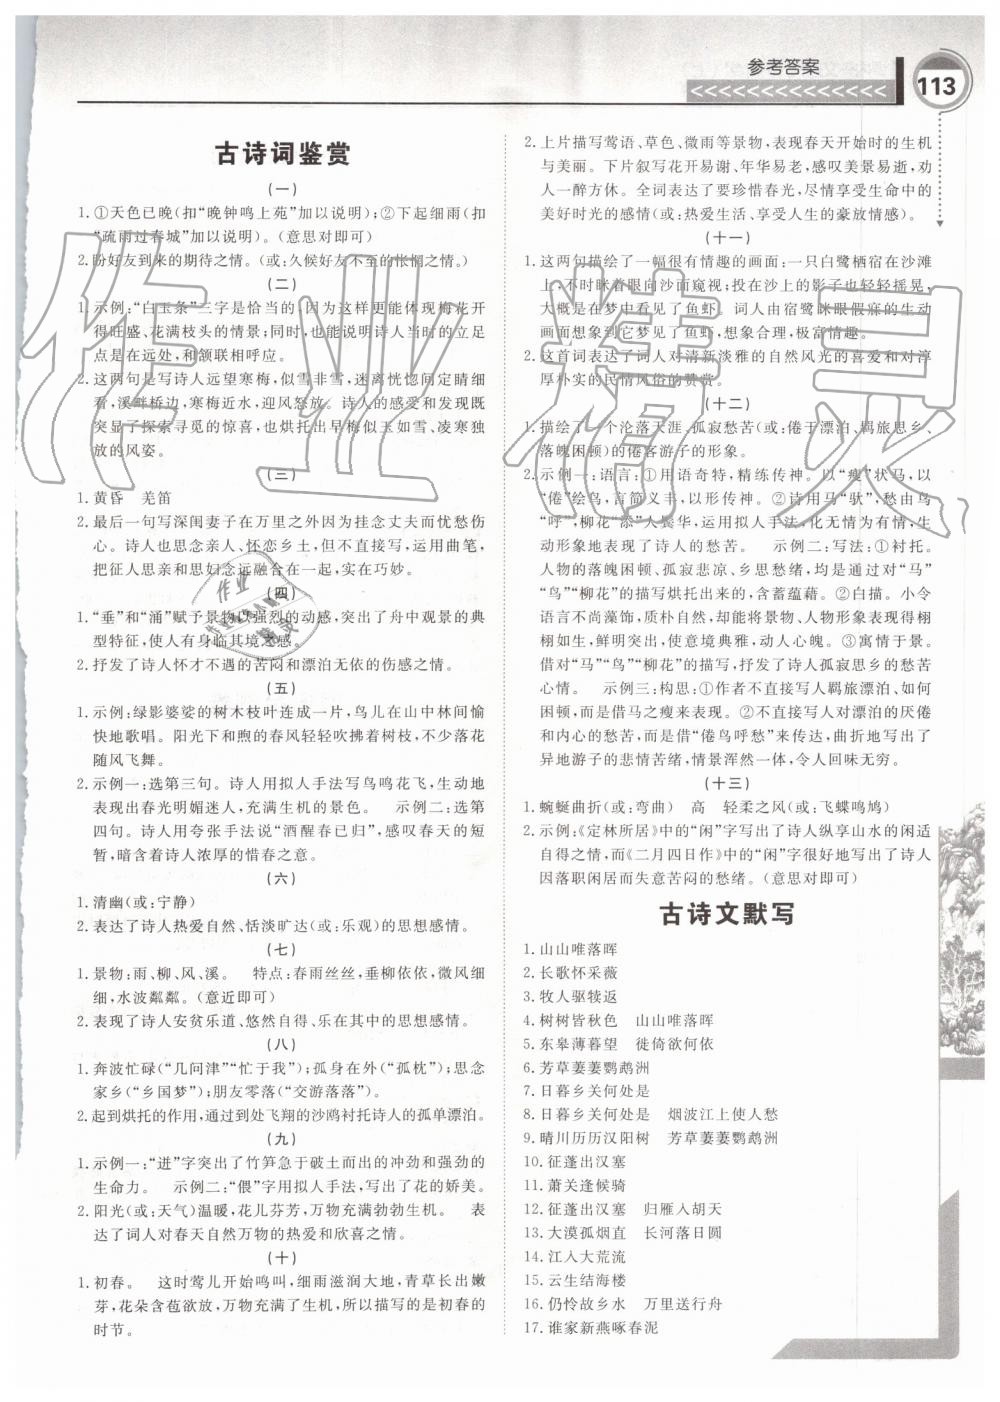 参考答案
113
<<<<<<<<<<<<<<
古诗词鉴赏
(一)
1. ①天色已晚(扣“晚钟鸣上苑”加以说明);②下起细雨(扣
“疏雨过春城”加以说明)。(意思对即可)
2. 盼好友到来的期待之情。(或:久候好友不至的怅惘之情。)
(二)
1. 示例:“白玉条”三字是恰当的,因为这样更能体现梅花开
得旺盛、花满枝头的情景;同时,也能说明诗人当时的立足
点是在远处,和颔联相呼应。
2. 这两句是写诗人远望寒梅,似雪非雪,迷离恍惚间定睛细
看,溪畔桥边,寒梅近水,一树独放。诗人的感受和发现既
突显了探索寻觅的惊喜,也烘托出早梅似玉如雪、凌寒独
放的风姿。
(三)
1. 黄昏　羌笛
2. 最后一句写深闺妻子在万里之外因为挂念丈夫而忧愁伤
心。诗人也思念亲人、怀恋乡土,但不直接写,运用曲笔,
把征人思亲和思妇念远融合在一起,实在巧妙。
(四)
1. “垂”和“涌”赋予景物以强烈的动感,突出了舟中观景的典
型特征,使人有身临其境之感。
2. 抒发了诗人怀才不遇的苦闷和漂泊无依的伤感之情。
(五)
1. 示例:绿影婆娑的树木枝叶连成一片,鸟儿在山中林间愉
快地歌唱。阳光下和煦的春风轻轻吹拂着树枝,不少落花
随风飞舞。
2. 示例一:选第三句。诗人用拟人手法写鸟鸣花飞,生动地
表现出春光明媚迷人,充满生机的景色。　示例二:选第
四句。诗人用夸张手法说“酒醒春已归”,感叹春天的短
暂,暗含着诗人浓厚的惜春之意。
(六)
1. 清幽(或:宁静)
2. 表达了诗人热爱自然、恬淡旷达(或:乐观)的思想感情。
(七)
1. 景物:雨、柳、风、溪。　特点:春雨丝丝,垂柳依依,微风细
细,水波粼粼。(意近即可)
2. 表现了诗人安贫乐道、悠然自得、乐在其中的思想感情。
(八)
1. 奔波忙碌(“几问津”“忙于我”);孤身在外(“孤枕”);思念
家乡(“乡国梦”);朋友零落(“交游落落”)
2. 起到烘托的作用,通过到处飞翔的沙鸥衬托诗人的孤单漂泊。
(九)
1. 示例一:“迸”字突出了竹笋急于破土而出的冲劲和强劲的
生命力。　示例二:“偎”字用拟人手法,写出了花的娇美。
2. 阳光(或:天气)温暖,花儿芬芳,万物充满勃勃生机。　表
达了词人对春天自然万物的热爱和欣喜之情。
(十)
1. 初春。　这时莺儿开始鸣叫,细雨滋润大地,青草长出嫩
芽,花朵含苞欲放,万物充满了生机,所以描写的是初春的
时节。
2. 上片描写莺语、草色、微雨等景物,表现春天开始时的生机
与美丽。下片叙写花开易谢、年华易老,感叹美景易逝,劝
人一醉方休。全词表达了要珍惜春光,尽情享受生命中的
美好时光的感情(或:热爱生活、享受人生的豪放情感)。
(十一)
1. 这两句描绘了一幅很有情趣的画面:一只白鹭栖宿在沙滩
上,不时眯着眼向沙面窥视;投在沙上的影子也轻轻摇晃,
大概是在梦中看见了鱼虾。词人由宿鹭眯眼假寐的生动
画面想象到它梦见了鱼虾,想象合理,极富情趣。
2. 这首词表达了词人对清新淡雅的自然风光的喜爱和对淳
厚朴实的民情风俗的赞赏。
(十二)
1. 描绘了一个沦落天涯、孤寂愁苦(或:倦于漂泊、羁旅思乡、
落魄困顿)的倦客游子的形象。
2. 示例一:语言:①用语奇特,精练传神。以“瘦”状马,以
“倦”绘鸟,言简义丰,以形传神。②诗用马“驮”,禽鸟
“呼”,柳花“添”人鬓华,运用拟人手法,化无情为有情,生
动形象地表现了诗人的愁苦。　示例二:写法:①衬托。
人物的落魄困顿、孤寂悲凉、思乡愁绪,均通过对“马”
“鸟”“柳花”的描写烘托出来的,含蓄蕴藉。②白描。小令
语言不尚藻饰,质朴无华,却能将景物、人物形象表现得栩
栩如生,鲜明突出,使意境典雅,动人心魄。③寓情于景。
借对“马”“鸟”“柳花”的描写,抒发了诗人孤寂思乡的愁苦
情怀。　示例三:构思:①作者不直接写人羁旅漂泊、如何
困顿,而是借马之瘦来表现。②不直接写对漂泊的厌倦
和内心的愁苦,而是以“倦鸟呼愁”来传达,曲折地写出了
异地游子的悲情苦情,情景浑然一体,令人回味无穷。
(十三)
1. 蜿蜒曲折(或:弯曲)　高　轻柔之风(或:飞蝶鸣鸠)
2. 示例:《定林所居》中的“闲”字写出了诗人纵享山水的闲适
自得之情,而《二月四日作》中的“闲”字很好地写出了诗人
因落职闲居而失意苦闷的愁绪。(意思对即可)
古诗文默写
1. 山山唯落晖
2. 长歌怀采薇
3. 牧人驱犊返
4. 树树皆秋色　山山唯落晖
5. 东皋薄暮望　徙倚欲何依
6. 芳草萋萋鹦鹉洲
7. 日暮乡关何处是
8. 日暮乡关何处是　烟波江上使人愁
9. 晴川历历汉阳树　芳草萋萋鹦鹉洲
10. 征蓬出汉塞
11. 萧关逢候骑
12. 征蓬出汉塞　归雁入胡天
13. 大漠孤烟直　长河落日圆
14. 江入大荒流
15. 云生结海楼
16. 仍怜故乡水　万里送行舟
17. 谁家新燕啄春泥
作业精灵